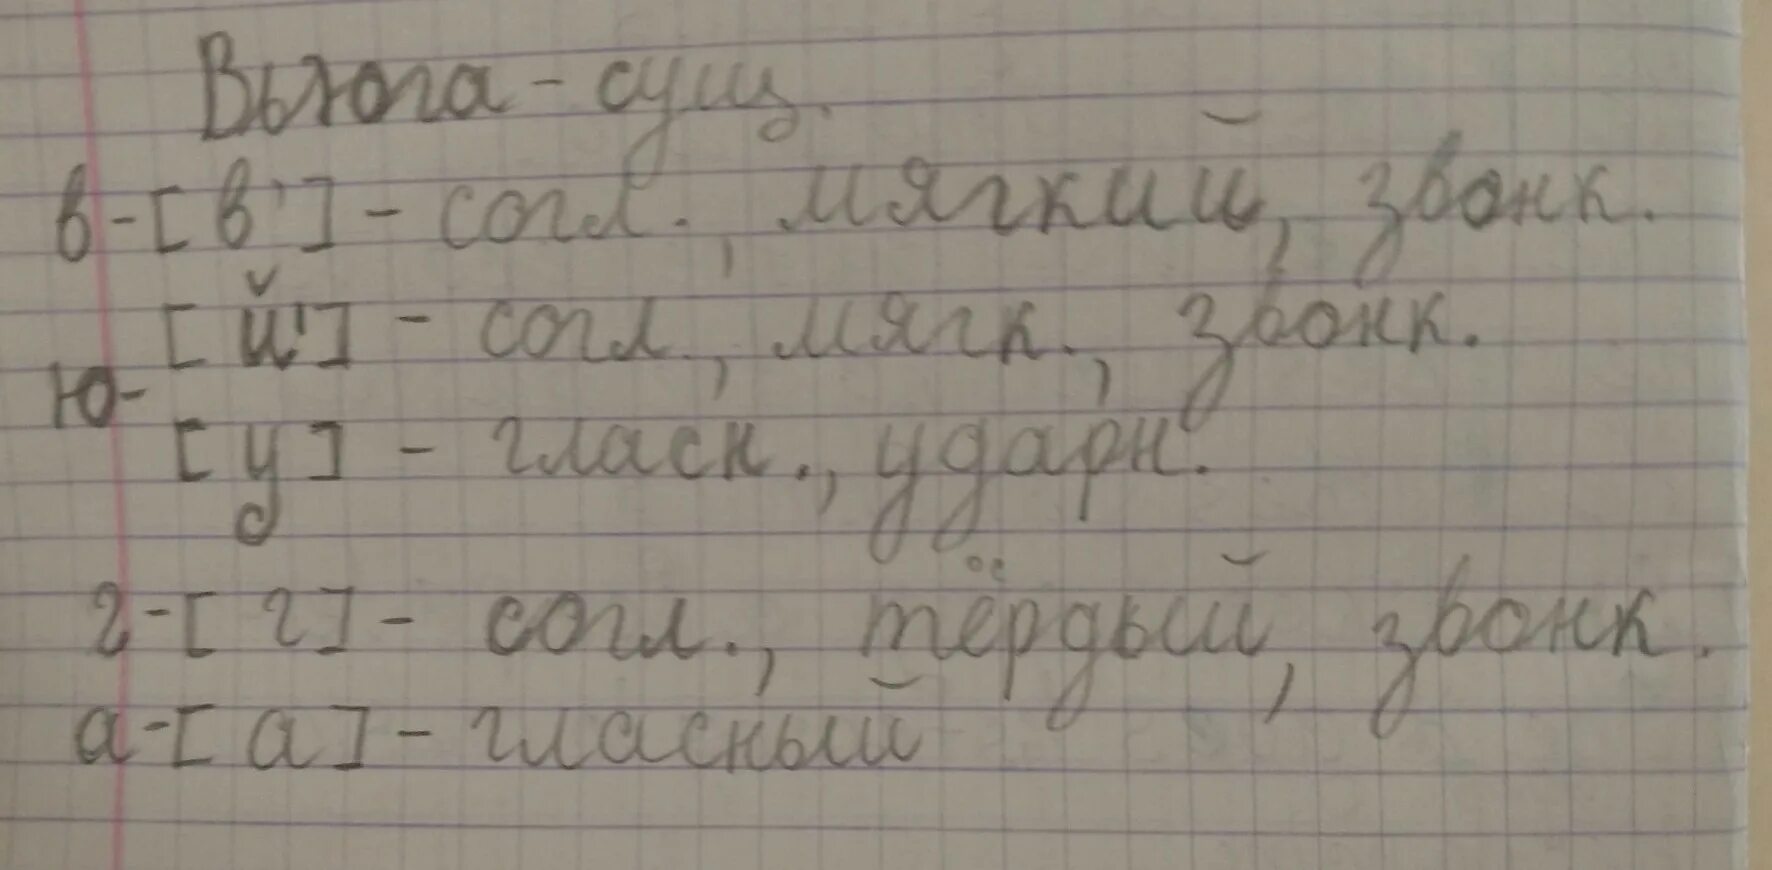 Вьюга - сущ.
в - [в'] - согл., мягкий, звонк.
[й'] - согл., мягк., звонк.
ю-
[у] - гласн., ударн.
г - [г] - согл., тёрдый, звонк.
а - [а] - гласный